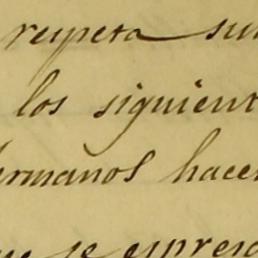 respeta su
los siguient
ermanos hacer
ue se espresa